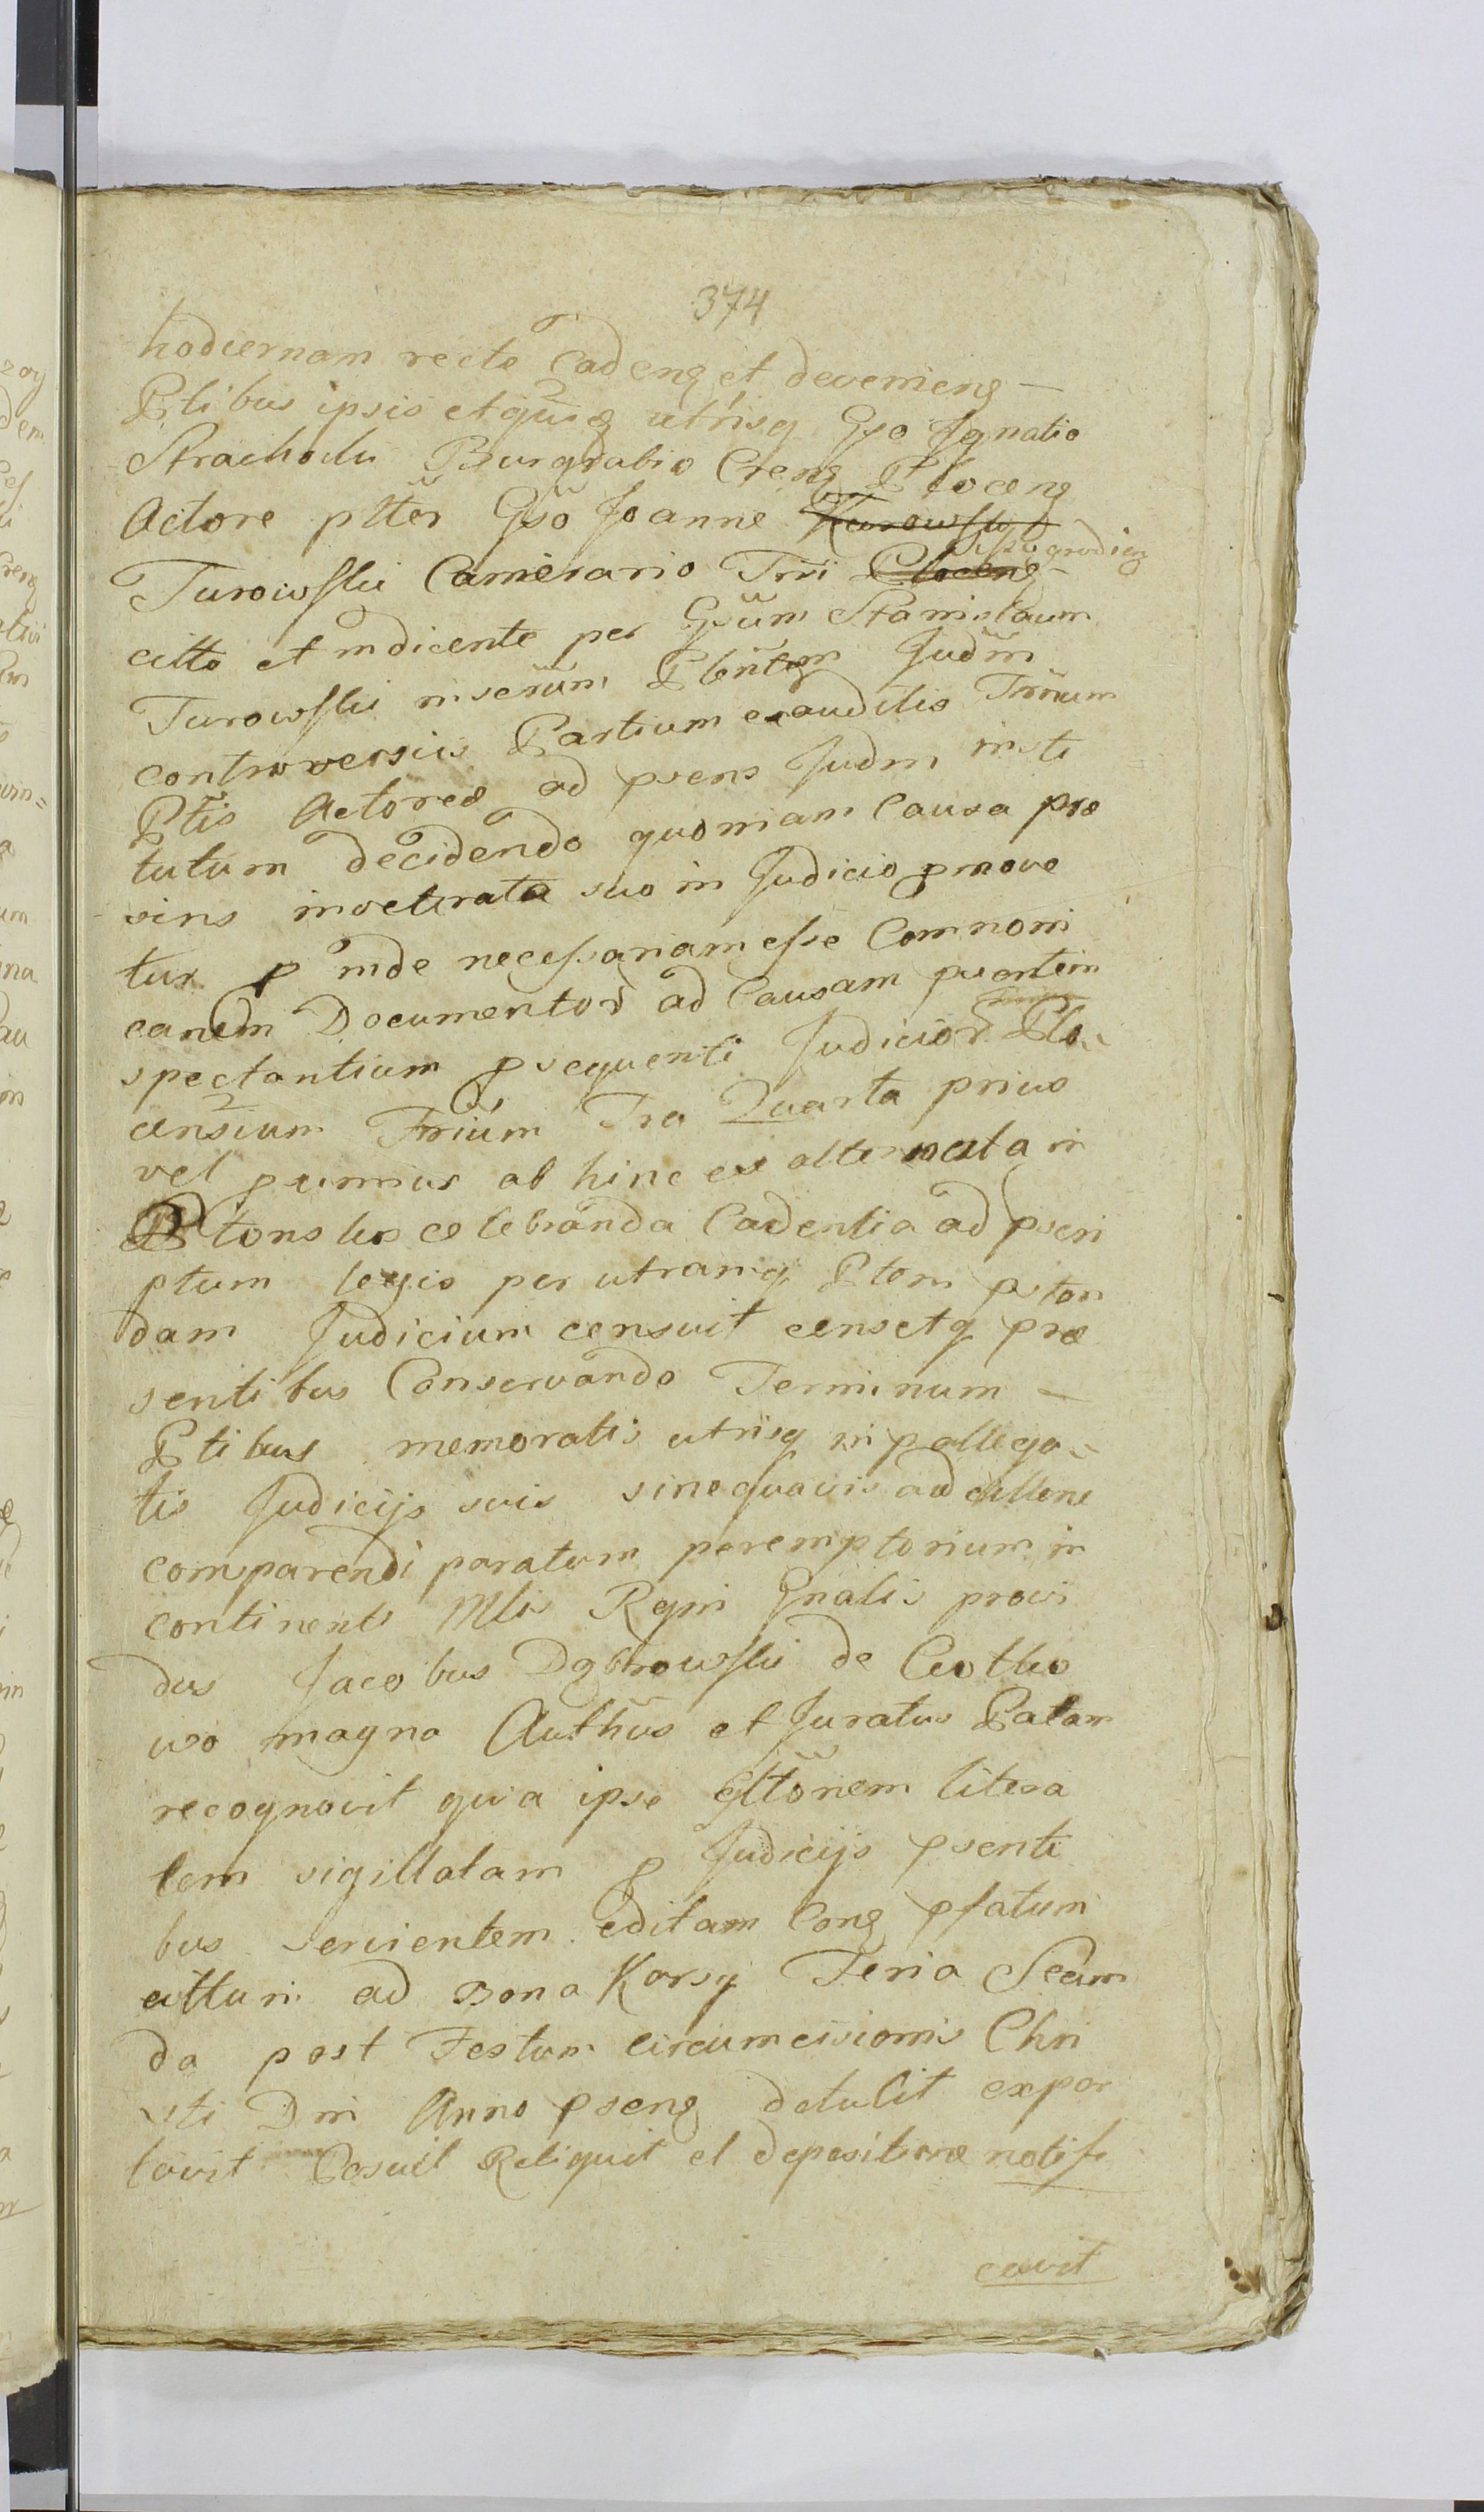 374
hodiernam recte Cadeng et devenieng —
Ptibus ipsis et utrisq Gso Ignatio
Strachocki Burgrabio Creng Ploceng
Actore plter Gso Joanne Karowski
Turowski Camerario Trri Ploceng Wyszogrodieng
citto et indicente per Gsum Stanislaum
Turowski Plentem Judm
controversiis Partium exauditis Trnum
Ptis Actorea ad psens Judm insti
tutum decidendo quoniam Causa præ
vins inveterata suo in Judicio pmove
tur p inde necessariam esse Commoni
canem Documentor ad Causam psentem
spectantium p sequenti Judicior Plo-
censium Trrium Tra Quarta prius
vel primus ab hinc ex alternata in
celebranda Cadentia ad pscri
ptum legis per utramq Ptem
dam Judicium censuit censetq præ
sentibus Conservando Terminum —
Ptibus memoratis utrisq in p allega-
tis Judicijs suis sine quavis adcittone
comparendi paratum peremptorium in
continenti Mlis Regni Gnalis provi
dus Jacobus Dąbrowski de Ciotko
wo magno Authus et Juratus Palam
recognovit quia ipse cittonem litera
lem sigillatam p Judicijs psenti
bus servientem editam Cong pfatum
cittum ad Bona Karsy Feria Secun
da post Festum Circumcisionis Chri
sti Dni Anno pseng detulit expor
tavit Posuit Reliquit et depositione notifi
cavit